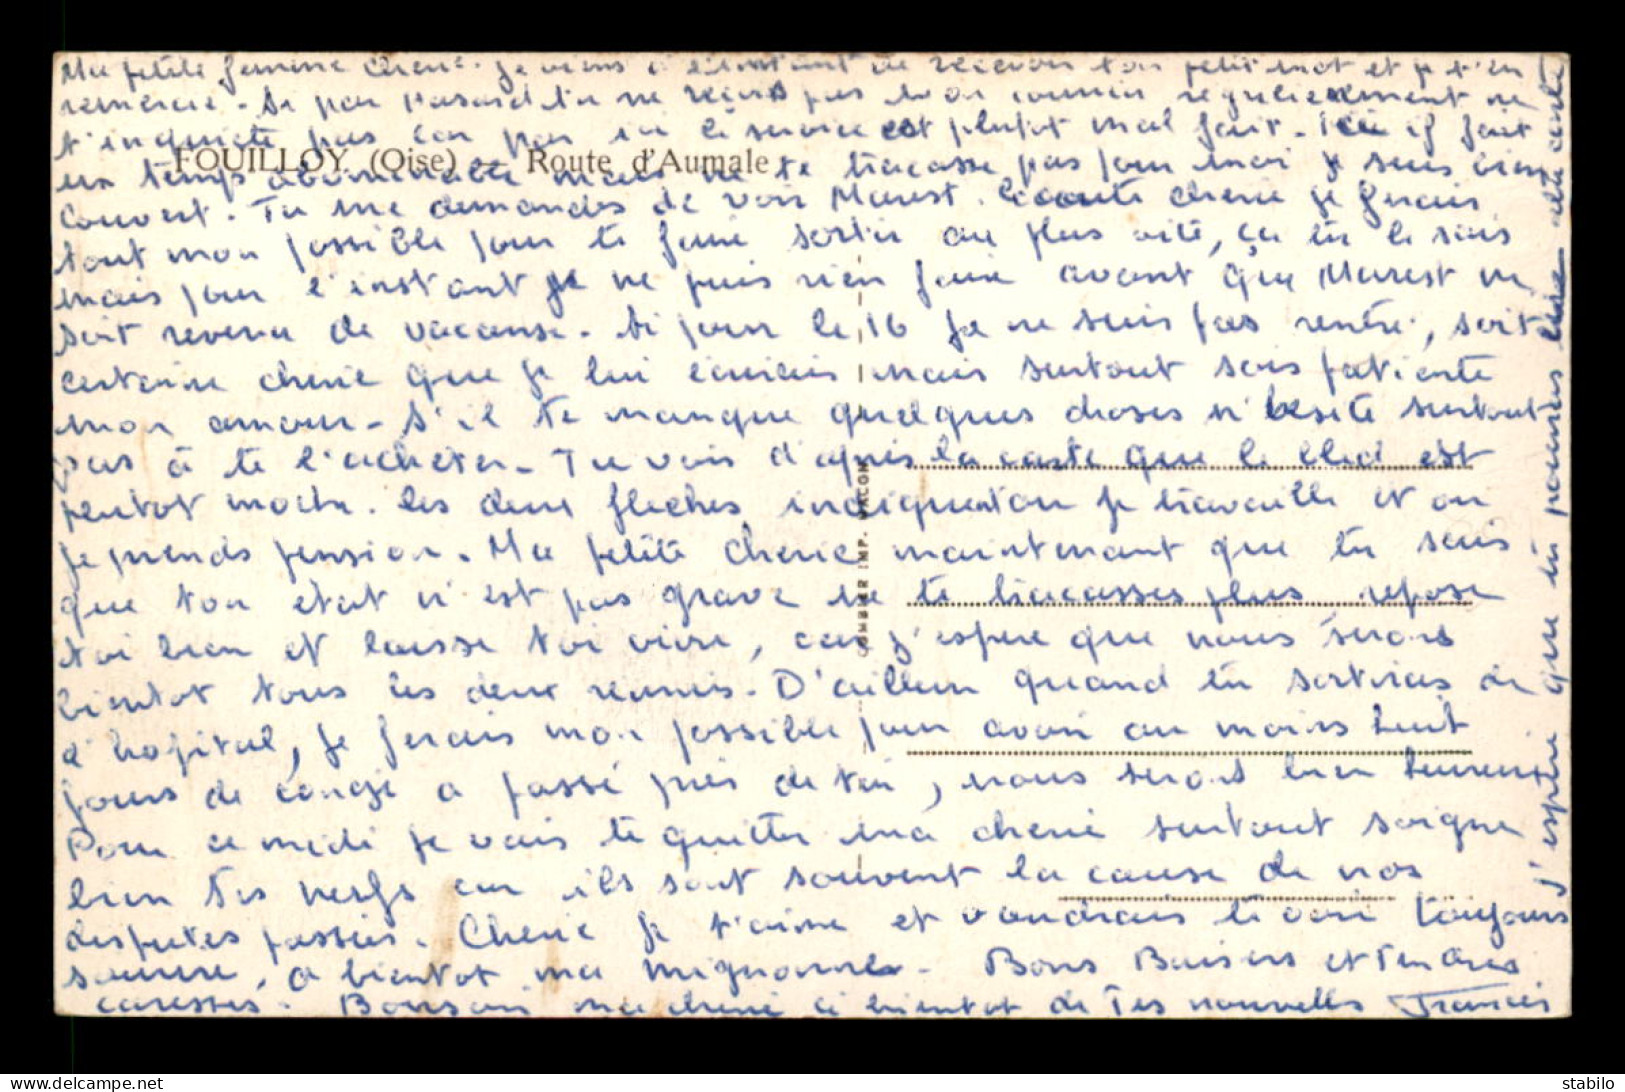 Ma petite femme cherie. Je viens à l'instant de recevoir ton petit mot et je t'en
remercie. Si par hasard tu ne reçois pas mon courrier regulierement ne
t'inquiete pas car par ici le service est plutot mal fait. Ici il fait
FOUILLOY (Oise) — Route d'Aumale
un temps abominable mais ne te tracasse pas pour moi je suis bien
couvert. Tu me demandes de voir Marest. Ecoute cherie je ferais
tout mon possible pour te faire sortir au plus vite, ça tu le sais
mais pour l'instant je ne puis rien faire avant que Marest ne
soit revenu de vacanse. Si pour le 16 je ne suis pas rentré, soit
certaine cherie que je lui ecrirais mais surtout sois patiente
mon amour. S'il te manque quelques choses n'hesite surtout
pas à te l'acheter. Tu vois d'après la carte que le bled est
plutot moche. les deux fleches indiquent ou je travaille et ou
je prends pension. Ma petite cherie maintenant que tu sais
que ton etat n'est pas grave ne te tracasses plus, repose
toi bien et laisse toi vivre, car j'espere que nous serons
bientot tous les deux reunis. D'ailleur quand tu sortiras de
l'hopital, je ferais mon possible pour avoir au moins huit
jours de congé a passé près de toi, nous serons bien heureux
Pour ce midi je vais te quitter ma cherie surtout soigne
bien tes nerfs car ils sont souvent la cause de nos
disputes passées. Cherie je t'aime et voudrais te voir toujours
sourire, a bientot ma mignonne. Bons Baisers et Tendres
caresses. Bonsoir ma cherie a bientot de Tes nouvelles Francis
j'espère que tu pourras lire cette carte
COMBIER IMP. MACON